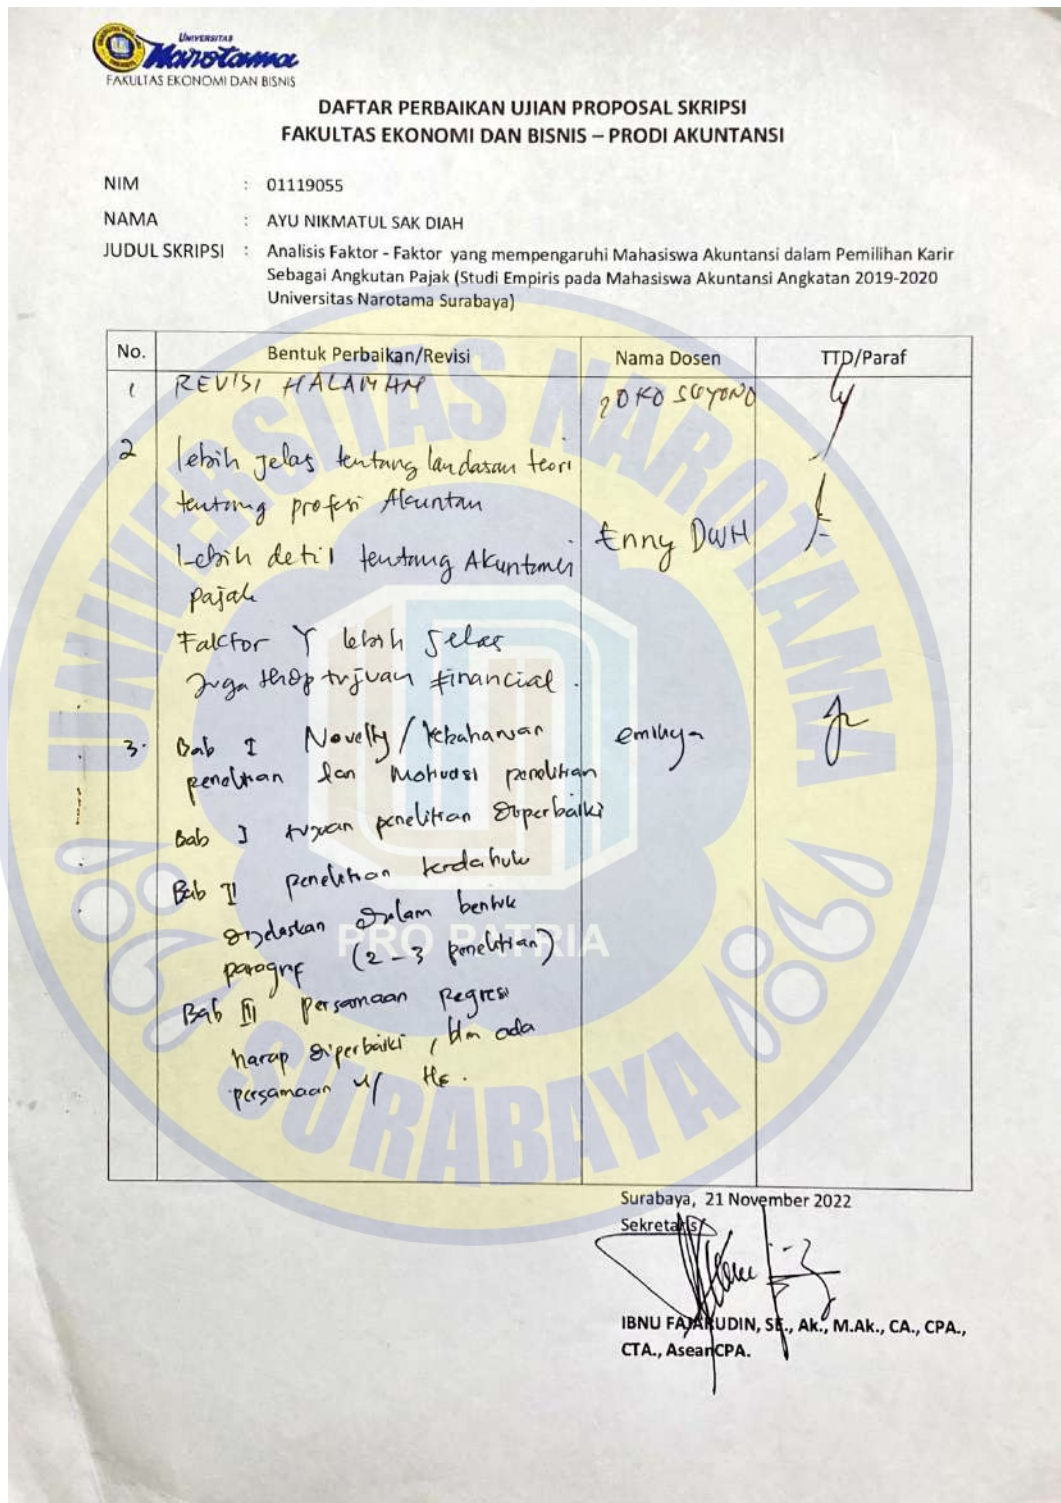 UNIVERSITAS
Narotama
FAKULTAS EKONOMI DAN BISNIS
DAFTAR PERBAIKAN UJIAN PROPOSAL SKRIPSI
FAKULTAS EKONOMI DAN BISNIS – PRODI AKUNTANSI
NIM : 01119055
NAMA : AYU NIKMATUL SAK DIAH
JUDUL SKRIPSI : Analisis Faktor - Faktor yang mempengaruhi Mahasiswa Akuntansi dalam Pemilihan Karir
Sebagai Angkutan Pajak (Studi Empiris pada Mahasiswa Akuntansi Angkatan 2019-2020
Universitas Narotama Surabaya)
No. Bentuk Perbaikan/Revisi Nama Dosen TTD/Paraf
1 REVISI HALAMAN JOKO SUYONO
2 lebih jelas tentang landasan teori
tentang profesi Akuntan
Enny DWH
Lebih detil tentang Akuntansi
pajak
Faktor Y lebih jelas
juga thdp tujuan financial.
3. Bab I Novelty/kebaharuan emilya
penelitian dan Motivasi penelitian
Bab I tujuan penelitian diperbaiki
Bab II penelitian terdahulu
dijelaskan dalam bentuk
paragraf (2-3 penelitian)
Bab III persamaan Regresi
harap diperbaiki, blm ada
persamaan u/
UNIVERSITAS NAROTAMA
PRO PATRIA
SURABAYA
Surabaya, 21 November 2022
Sekretaris
IBNU FAJARUDIN, SE., Ak., M.Ak., CA., CPA.,
CTA., AseanCPA.